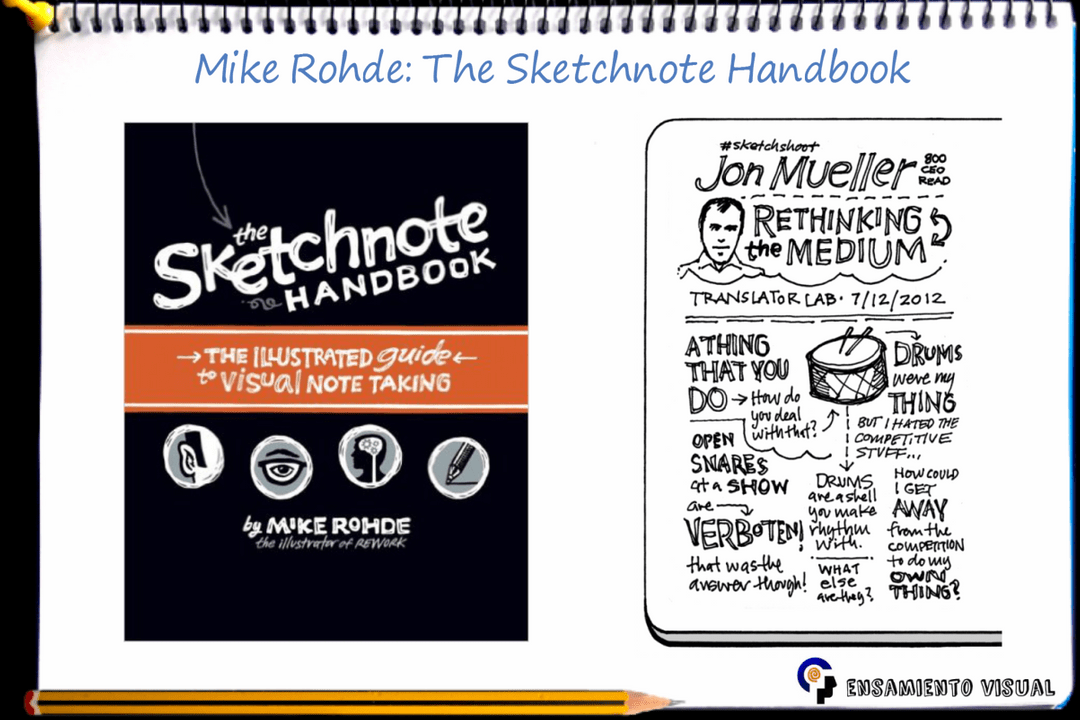 Mike Rohde: The Sketchnote Handbook
the
Sketchnote
HANDBOOK
→ THE ILLUSTRATED guide ←
to visual NOTE TAKING
by MIKE ROHDE
the illustrator of REWORK
#sketchshoot
Jon Mueller
800
CEO
ReAD
RETHINKING
the MEDIUM
TRANSLATOR LAB · 7/12/2012
A THING
THAT YOU
DO → How do
you deal
with that?
OPEN
SNARES
at a SHOW
are
VERBOTEN!
that was the
answer though!
DRUMS
were my
THING
BUT I HATED THE
COMPETITIVE
STUFF...
DRUMS
are a shell
you make
rhythm
with.
WHAT
else
are they?
HOW COULD
I GET
AWAY
from the
COMPETITION
to do my
OWN
THING?
ENSAMIENTO VISUAL